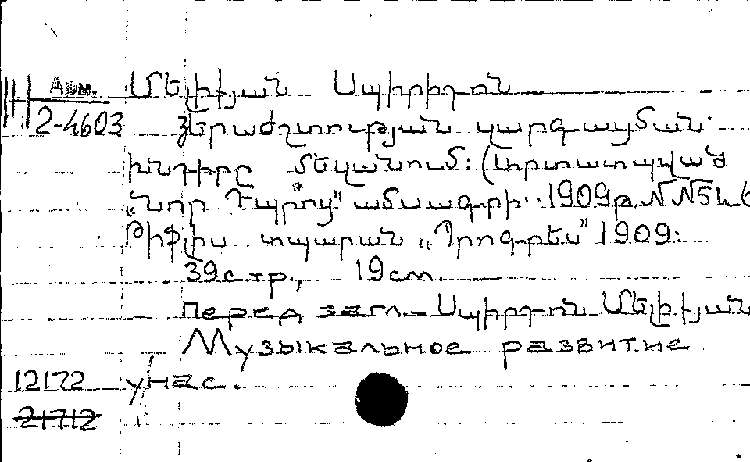 Арм. Մելիքյան Սպիրիդոն
2-4603 Երաժշտության կարգացման
խնդիրը մեզանում: (Արտատպված
„Նոր Դպրոց" ամսագրի 1909թ. NN 5 և 6
Թիֆլիս տպարան „Պրոգրես" 1909:
39 стр., 19 см
перед загл.- Սպիրդոն Մելիքյան
Музыкальное развитие
12172 у нас.
21712